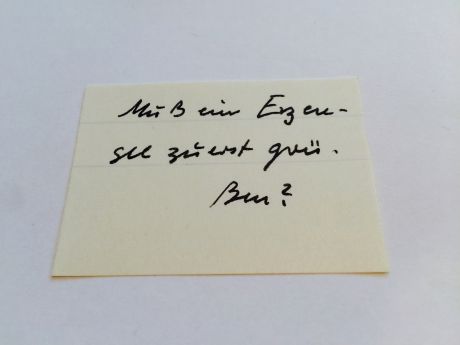 Muß ein Erzen-
gel zuerst grü-
ßen?